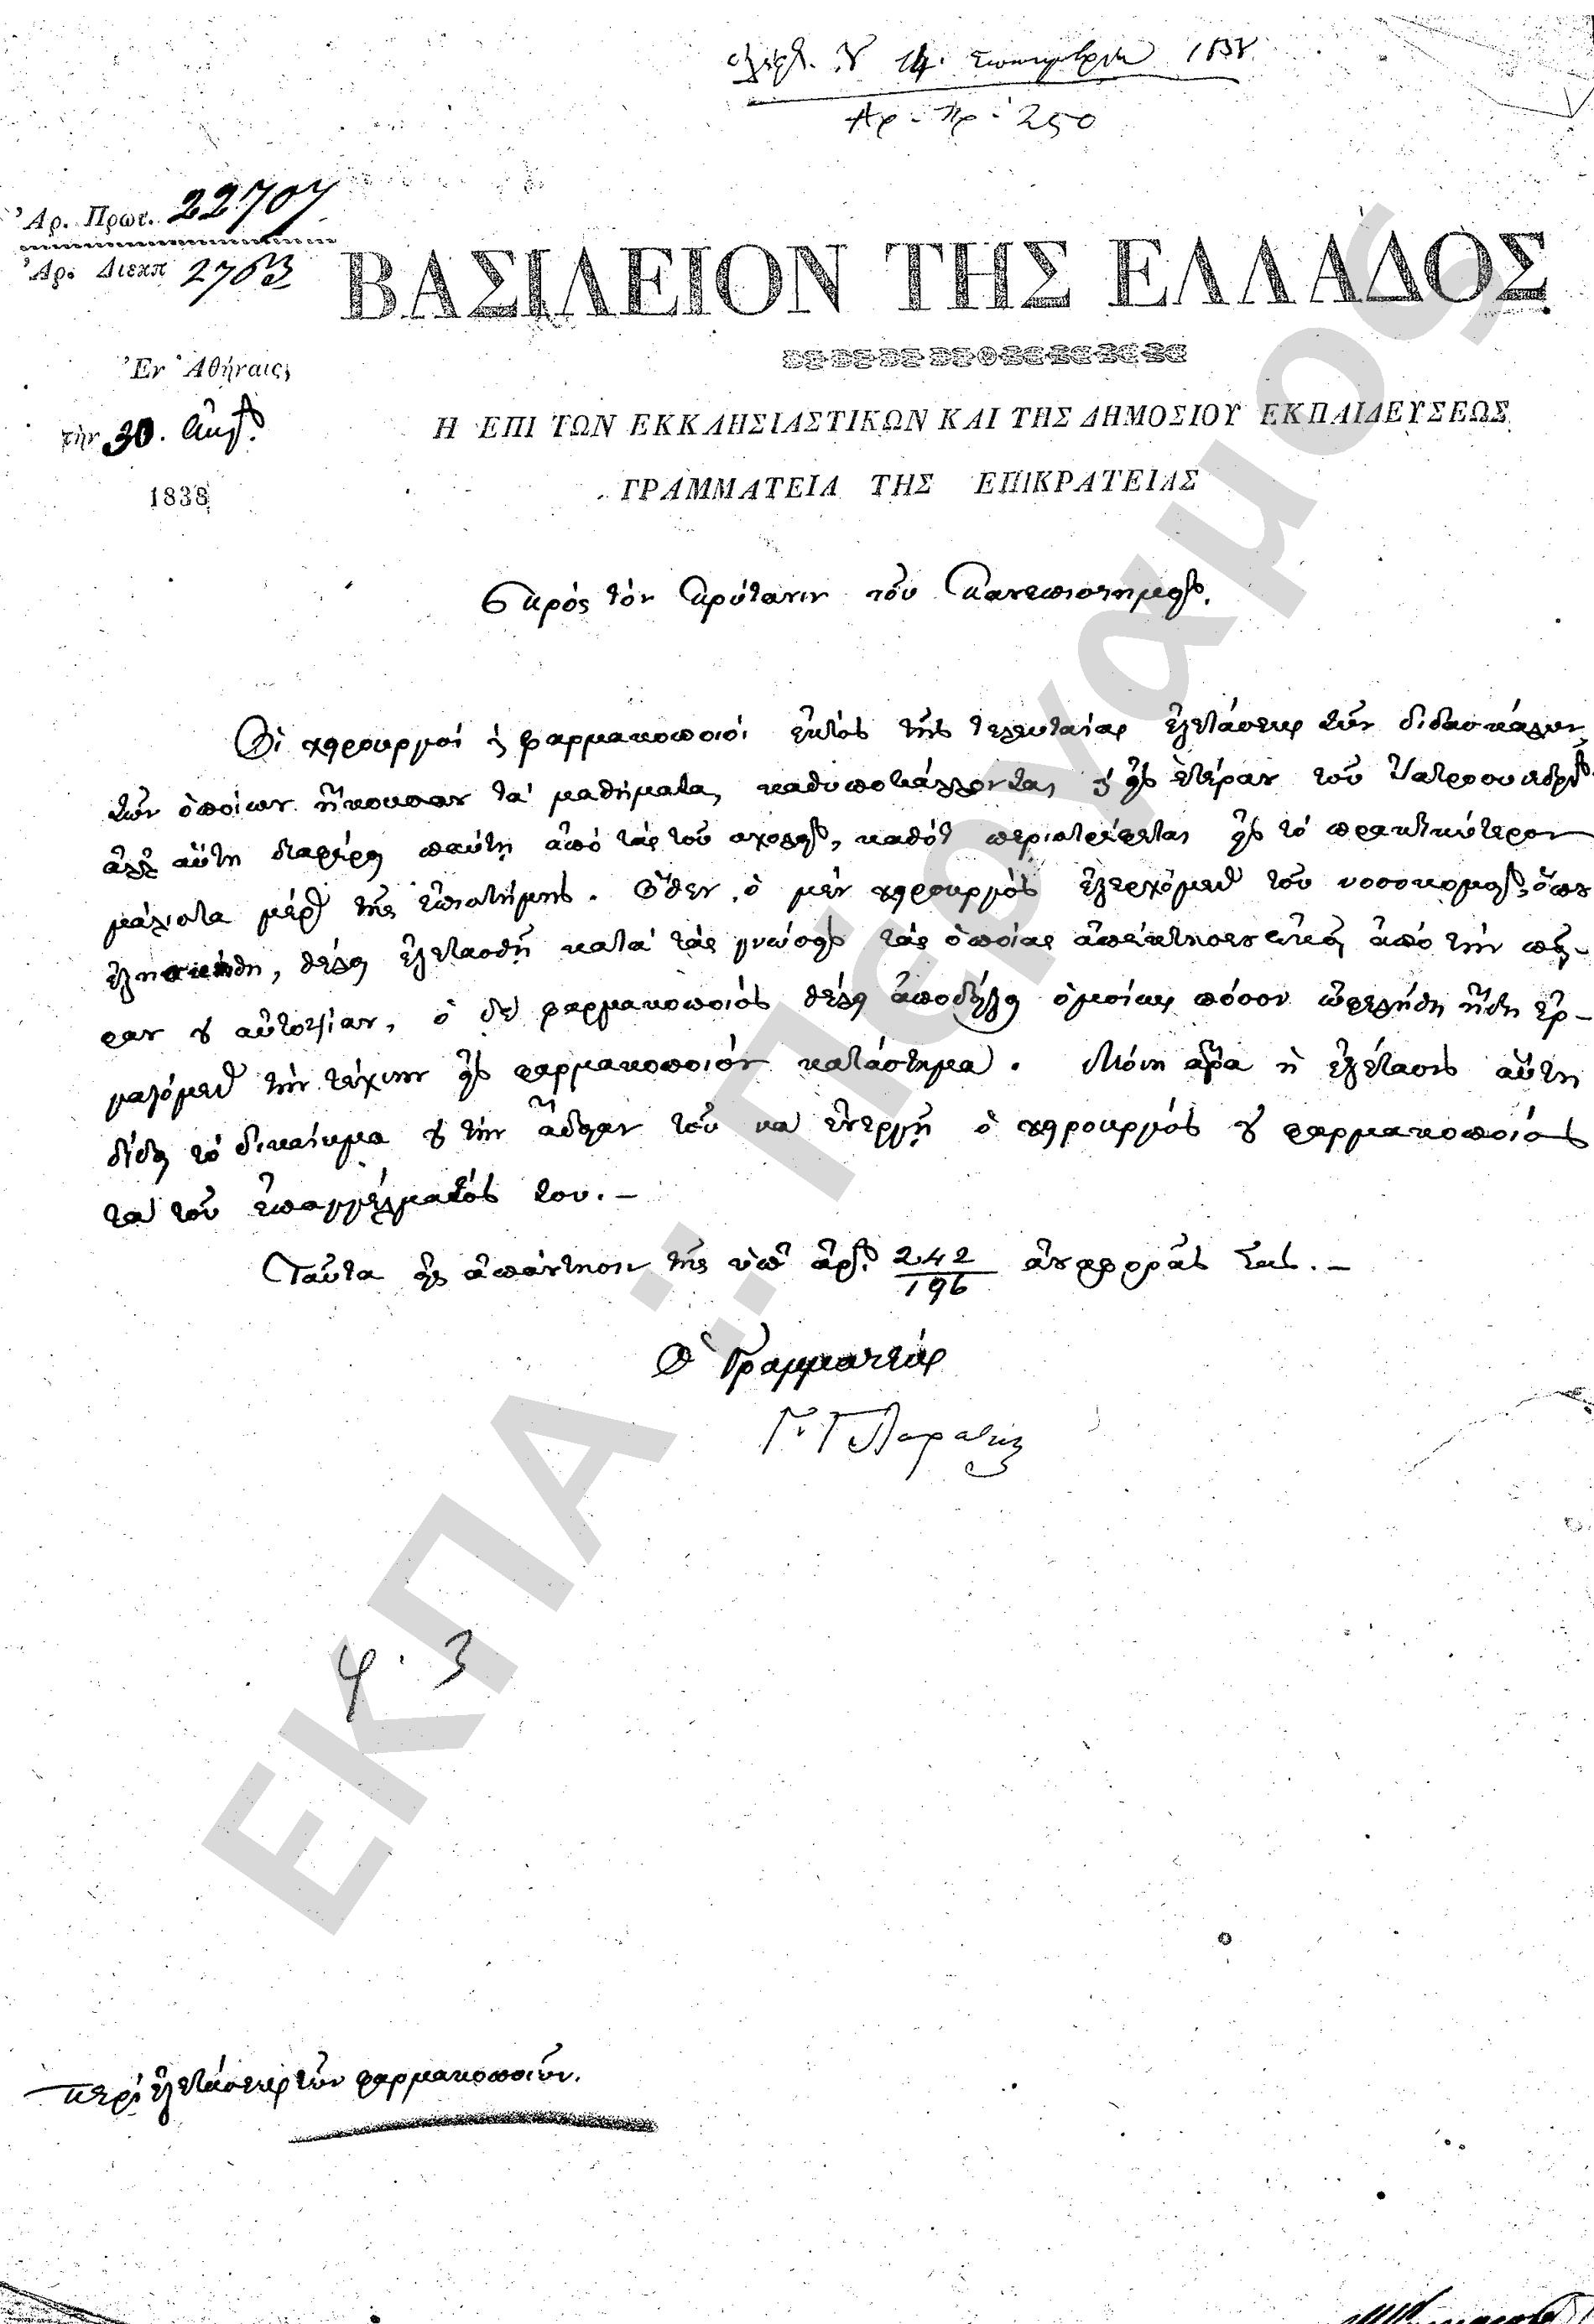 ἐλήφθ. τ 14. Σεπτεμβρίου 1838
Αρ. Πρ. 250
Ἀρ. Πρωτ. 22707
Ἀρ. Διεκπ 2763
ΒΑΣΙΛΕΙΟΝ ΤΗΣ ΕΛΛΑΔΟΣ
Ἐν Ἀθήναις,
τὴν 30. Αὐγ.
1838
Η ΕΠΙ ΤΩΝ ΕΚΚΛΗΣΙΑΣΤΙΚΩΝ ΚΑΙ ΤΗΣ ΔΗΜΟΣΙΟΥ ΕΚΠΑΙΔΕΥΣΕΩΣ
ΓΡΑΜΜΑΤΕΙΑ ΤΗΣ ΕΠΙΚΡΑΤΕΙΑΣ
Πρὸς τὸν Πρύτανιν τοῦ Πανεπιστημίου.
Οἱ χειρουργοί καὶ φαρμακοποιοί ἐκτὸς τῆς τελευταίας ἐξετάσεως τῶν διδασκάλων,
τῶν ὁποίων ἤκουσαν τὰ μαθήματα, καθυποβάλλονται καὶ εἰς ἑτέραν τοῦ Ἰατροσυνεδρίου
ἀλλ' αὕτη διαφέρει παύτη ἀπὸ τὰς τοῦ σχολείου, καθότι περιστρέφεται εἰς τὸ πρακτικώτερον
μάλιστα μέρος τῆς ἐπιστήμης. Ὅθεν ὁ μὲν χειρουργὸς ἐξερχόμενος τοῦ νοσοκομείου, ὅπου
ἐξησκήθη, θέλει ἐξετασθῆ κατὰ τὰς γνώσεις τὰς ὁποίας ἀπέκτησεν ἐκεῖ ἀπὸ τὴν πεῖ-
ραν καὶ αὐτοψίαν, ὁ δὲ φαρμακοποιὸς θέλει ἀποδείξει ὁμοίως πόσον ὠφελήθη ἤδη ἐρ-
γαζόμενος τὴν τέχνην εἰς φαρμακοποιὸν κατάστημα. Μόνη ἄρα ἡ ἐξέτασις αὕτη
δίδει τὸ δικαίωμα καὶ τὴν ἄδειαν τοῦ νὰ ἐνεργῇ ὁ χειρουργὸς καὶ φαρμακοποιὸς
τὰ τοῦ ἐπαγγέλματός του.—
Ταῦτα εἰς ἀπάντησιν τῆς ὑπ' ἀρ. 242/196 ἀναφορᾶς Σας.—
Ὁ Γραμματεὺς
Γ. Γλαράκης
φ. 3
περὶ ἐξετάσεως τῶν φαρμακοποιῶν.
ΕΚΠΑ :: Πέργαμος